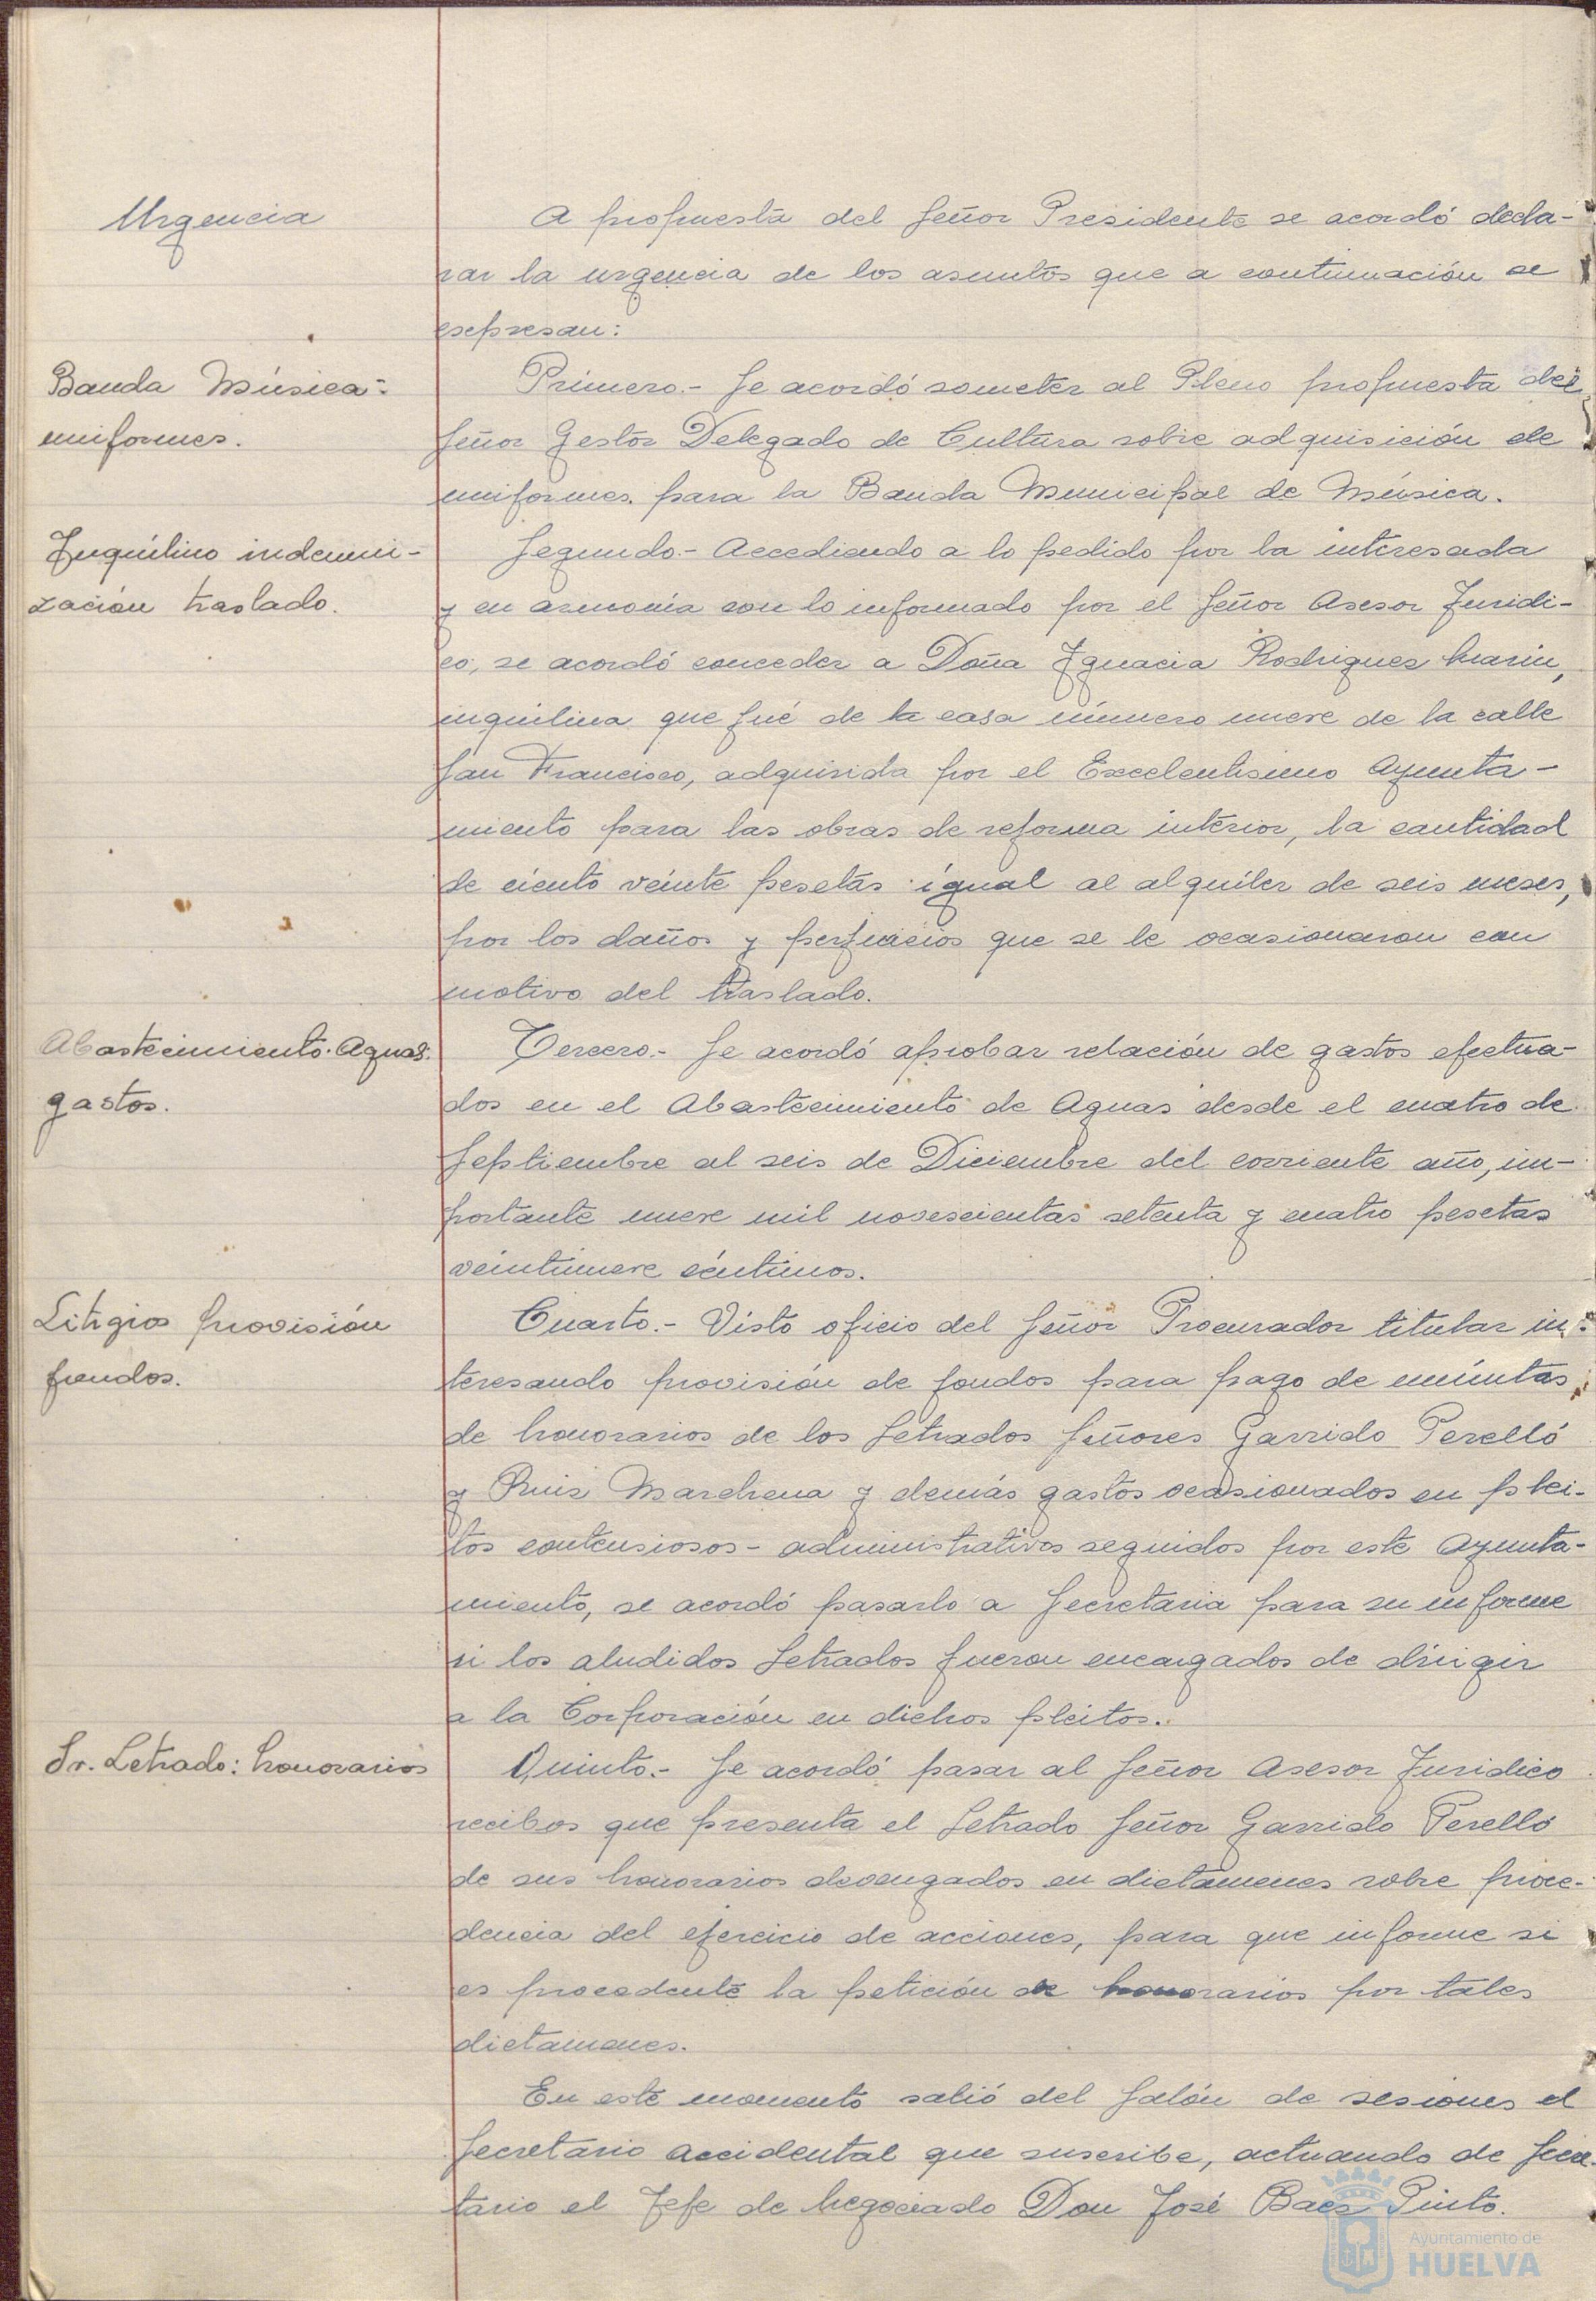 Urgencia
A propuesta del Señor Presidente se acordó decla-
rar la urgencia de los asuntos que a continuación se
expresan:
Banda Música:
uniformes.
Primero.- Se acordó someter al Pleno propuesta del
Señor Gestor Delegado de Cultura sobre adquisición de
uniformes para la Banda Municipal de Música.
Inquilino indemni-
zación traslado.
Segundo.- Accediendo a lo pedido por la interesada
y en armonía con lo informado por el Señor Asesor Juridi-
co, se acordó conceder a Doña Ignacia Rodriguez Marin,
inquilina que fué de la casa número nueve de la calle
San Francisco, adquirida por el Excelentisimo Ayunta-
miento para las obras de reforma interior, la cantidad
de ciento veinte pesetas igual al alquiler de seis meses,
por los daños y perjuicios que se le ocasionaron con
motivo del traslado.
Abastecimiento Aguas:
gastos.
Tercero.- Se acordó aprobar relación de gastos efectua-
dos en el Abastecimiento de Aguas desde el cuatro de
Septiembre al seis de Diciembre del corriente año, im-
portante nueve mil novescientas setenta y cuatro pesetas
veintinueve céntimos.
Litigios provisión
fondos.
Cuarto.- Visto oficio del Señor Procurador titular in-
teresando provisión de fondos para pago de minutas
de honorarios de los Letrados Señores Garrido Perelló
y Ruiz Marchena y demás gastos ocasionados en plei-
tos contensiosos-administrativos seguidos por este Ayunta-
miento, se acordó pasarlo a Secretaria para su informe
si los aludidos Letrados fueron encargados de dirigir
a la Corporación en dichos pleitos.
Sr. Letrado: honorarios
Quinto.- Se acordó pasar al Señor Asesor Juridico
recibos que presenta el Letrado Señor Garrido Perelló
de sus honorarios devengados en dictamenes sobre proce-
dencia del ejercicio de acciones, para que informe si
es procedente la petición de honorarios por tales
dictamenes.
En este momento salió del Salón de sesiones el
Secretario accidental que suscribe, actuando de Secre-
tario el Jefe de Negociado Don José Baez Pinto.
Ayuntamiento de
HUELVA